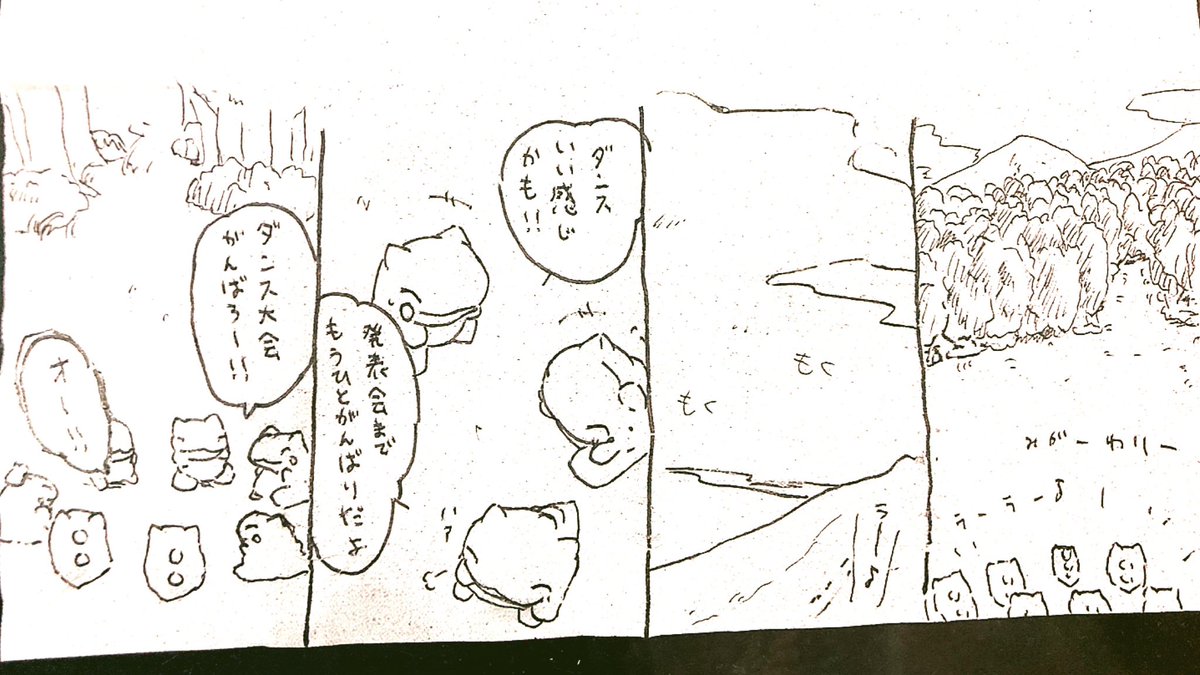 みがーわりー
ラーラーよー
もっ
もっ
ダンス
いい感じ
かも!!
発表会まで
もうひとがんばりだよ
ハァ
ダンス大会
がんばろー!!
オー!!